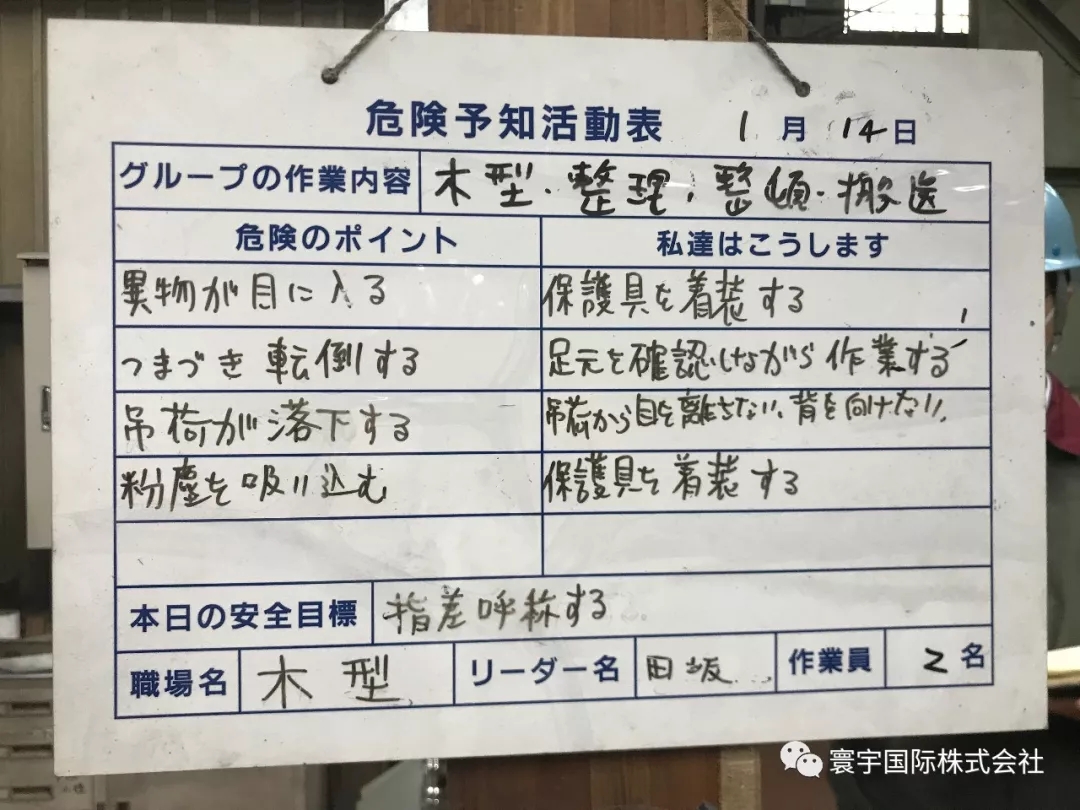 危険予知活動表 1月14日
グループの作業内容 木型・整理・整頓・搬送
危険のポイント 私達はこうします
異物が目に入る 保護具を着装する
つまづき転倒する 足元を確認しながら作業する
吊荷が落下する 吊荷から目を離さない、背を向けない
粉塵を吸い込む 保護具を着装する
本日の安全目標 指差呼称する
職場名 木型 リーダー名 田坂 作業員 2名
寰宇国际株式会社